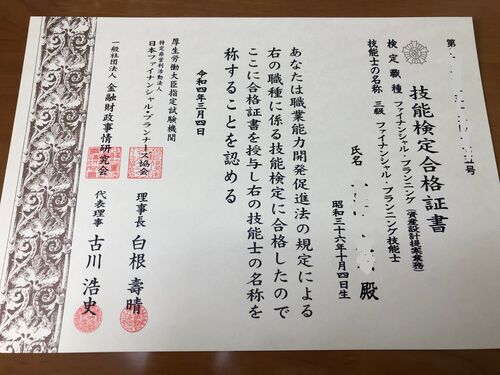 第 号
技能検定合格証書
検定職種 ファイナンシャル・プランニング(資産設計提案業務)
技能士の名称 三級 ファイナンシャル・プランニング技能士
氏名 殿
昭和三十六年十月四日生
あなたは職業能力開発促進法の規定による
右の職種に係る技能検定に合格したので
ここに合格証書を授与し右の技能士の名称を
称することを認める
令和四年三月四日
厚生労働大臣指定試験機関
特定非営利活動法人
日本ファイナンシャル・プランナーズ協会
理事長 白根壽晴
一般社団法人 金融財政事情研究会
代表理事 古川浩史